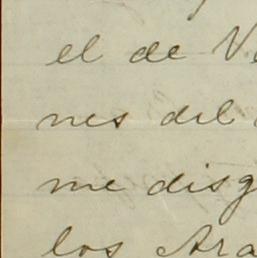 el de Ve
nes del
me disg
los Ara